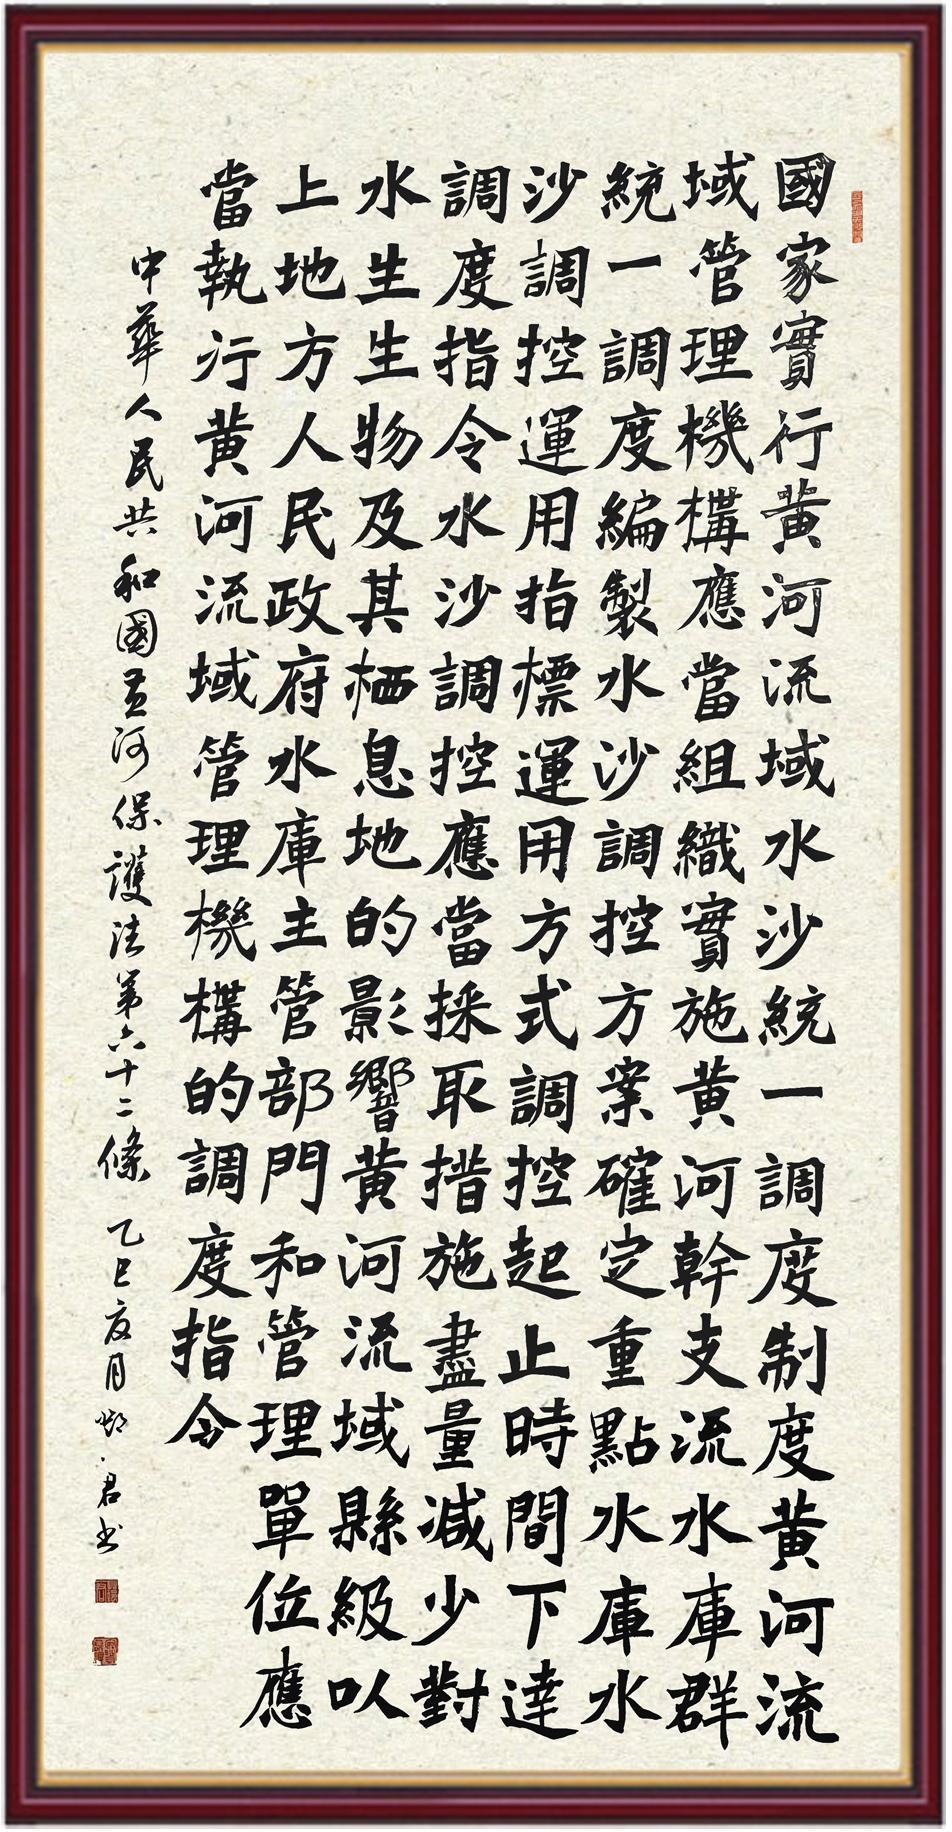 國家實行黄河流域水沙統一調度制度黄河流
域管理機構應當組織實施黄河幹支流水庫群
統一調度編製水沙調控方案確定重點水庫水
沙調控運用指標運用方式調控起止時間下達
調度指令水沙調控應當採取措施盡量減少對
水生生物及其栖息地的影響黄河流域縣級以
上地方人民政府水庫主管部門和管理單位應
當執行黄河流域管理機構的調度指令
中華人民共和國黄河保護法第六十二條 乙巳夏月 君书